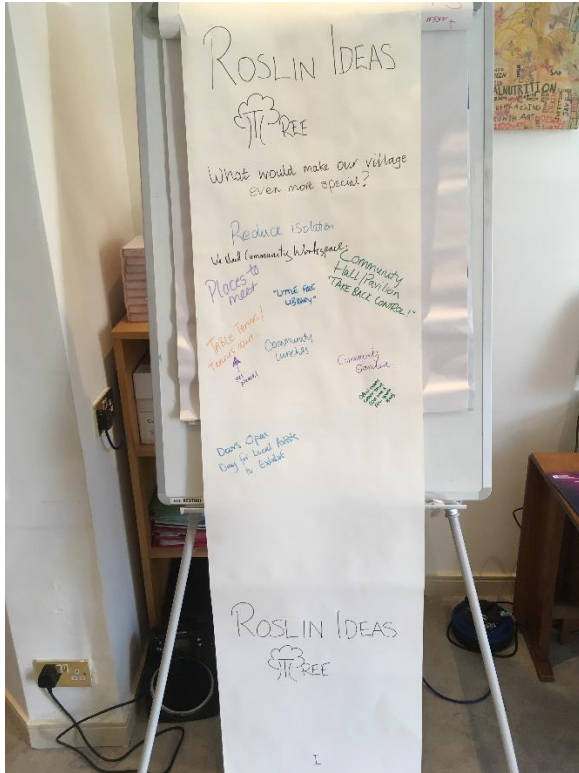 ROSLIN IDEAS
TREE
What would make our village
even more special?
Reduce isolation
Community Workspace
Places to
meet
"LITTLE FREE
LIBRARY"
Community
Hall/Pavilion
"TAKE BACK CONTROL!"
TABLE TENNIS/
Tennis court
Community
Lunches
Community
Doors Open
Day for Local Artists
to Exhibit
ROSLIN IDEAS
TREE
I
MALNUTRITION